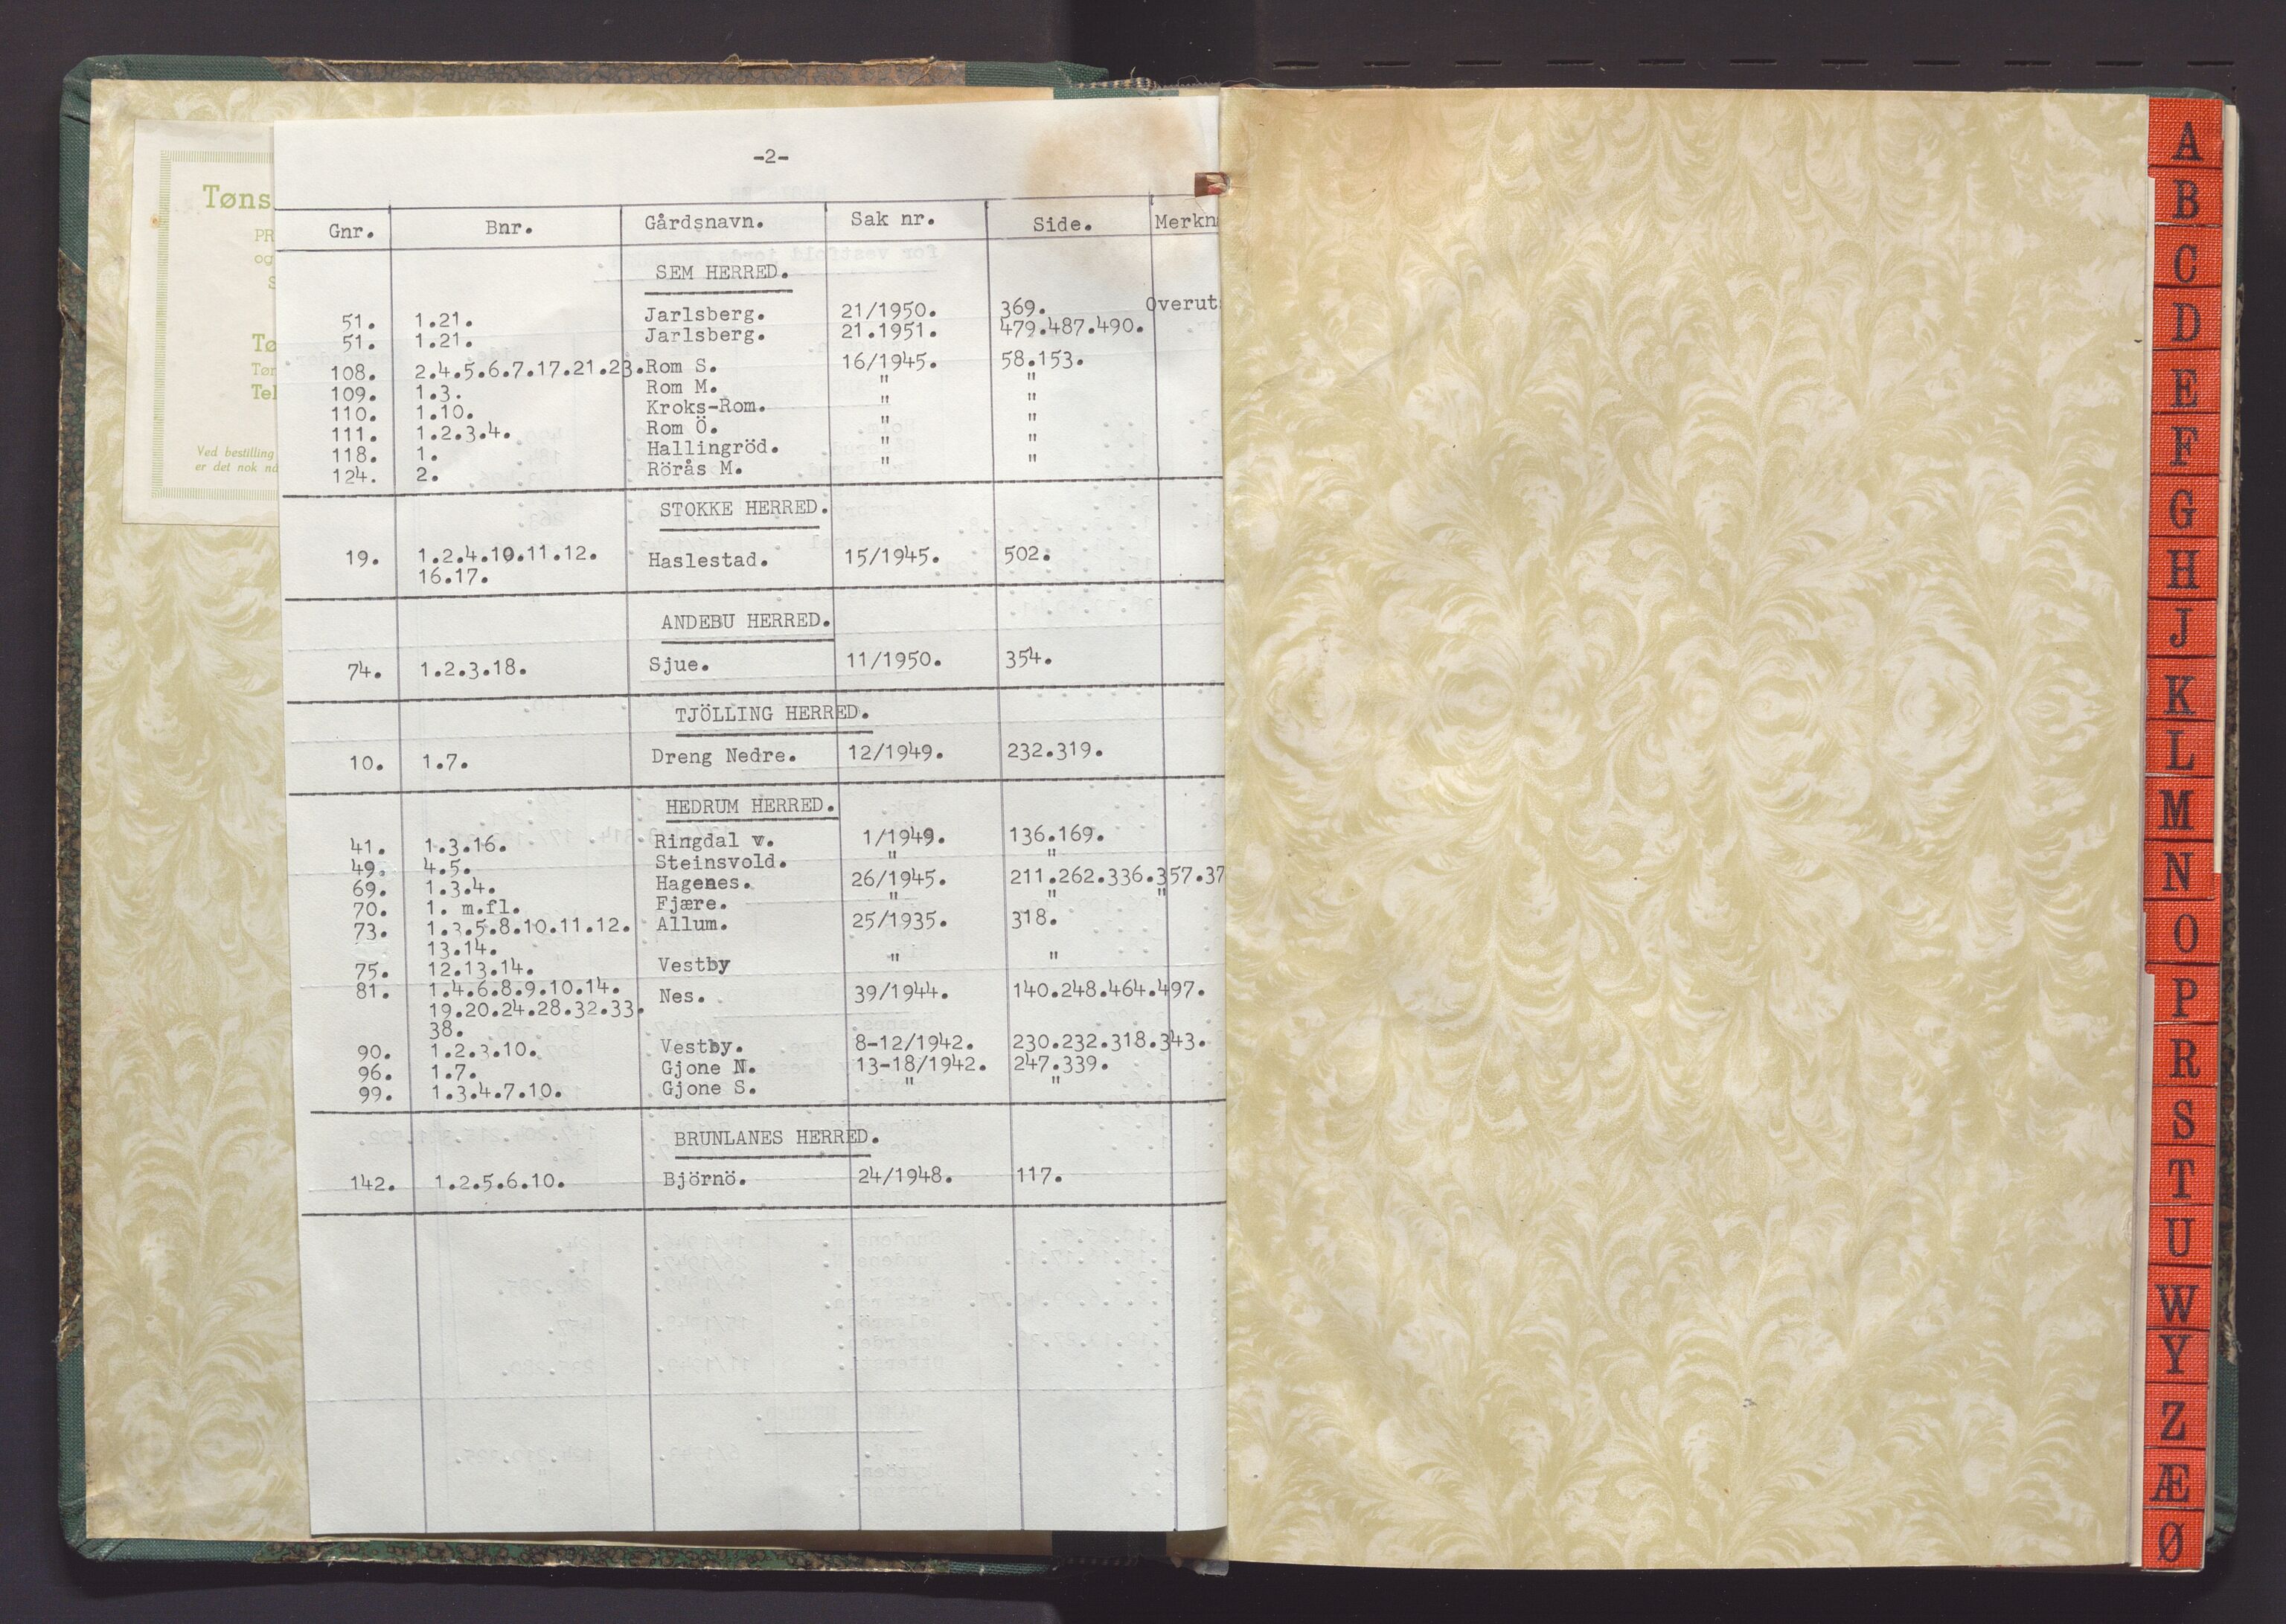 -2-
Gnr. Bnr. Gårdsnavn. Sak nr. Side. Merkn
SEM HERRED.
51. 1.21. Jarlsberg. 21/1950. 369. Overuts
51. 1.21. Jarlsberg. 21.1951. 479.487.490.
108. 2.4.5.6.7.17.21.23. Rom S. 16/1945. 58.153.
109. 1.3. Rom M. " "
110. 1.10. Kroks-Rom. " "
111. 1.2.3.4. Rom Ö. " "
118. 1. Hallingröd. " "
124. 2. Rörås M. " "
STOKKE HERRED.
19. 1.2.4.10.11.12. Haslestad. 15/1945. 502.
16.17.
ANDEBU HERRED.
74. 1.2.3.18. Sjue. 11/1950. 354.
TJÖLLING HERRED.
10. 1.7. Dreng Nedre. 12/1949. 232.319.
HEDRUM HERRED.
41. 1.3.16. Ringdal v. 1/1949. 136.169.
49. 4.5. Steinsvold. " "
69. 1.3.4. Hagenes. 26/1945. 211.262.336.357.37
70. 1. m.fl. Fjære. " " "
73. 1.3.5.8.10.11.12. Allum. 25/1935. 318.
13.14.
75. 12.13.14. Vestby " "
81. 1.4.6.8.9.10.14. Nes. 39/1944. 140.248.464.497.
19.20.24.28.32.33.
38.
90. 1.2.3.10. Vestby. 8-12/1942. 230.232.318.343.
96. 1.7. Gjone N. 13-18/1942. 247.339.
99. 1.3.4.7.10. Gjone S. " "
BRUNLANES HERRED.
142. 1.2.5.6.10. Björnö. 24/1948. 117.
Tøns
PR
og
S
Tø
Tøn
Tel
Ved bestilling
er det nok nå
A
B
C
D
E
F
G
H
J
K
L
M
N
O
P
R
S
T
U
W
Y
Z
Æ
Ø